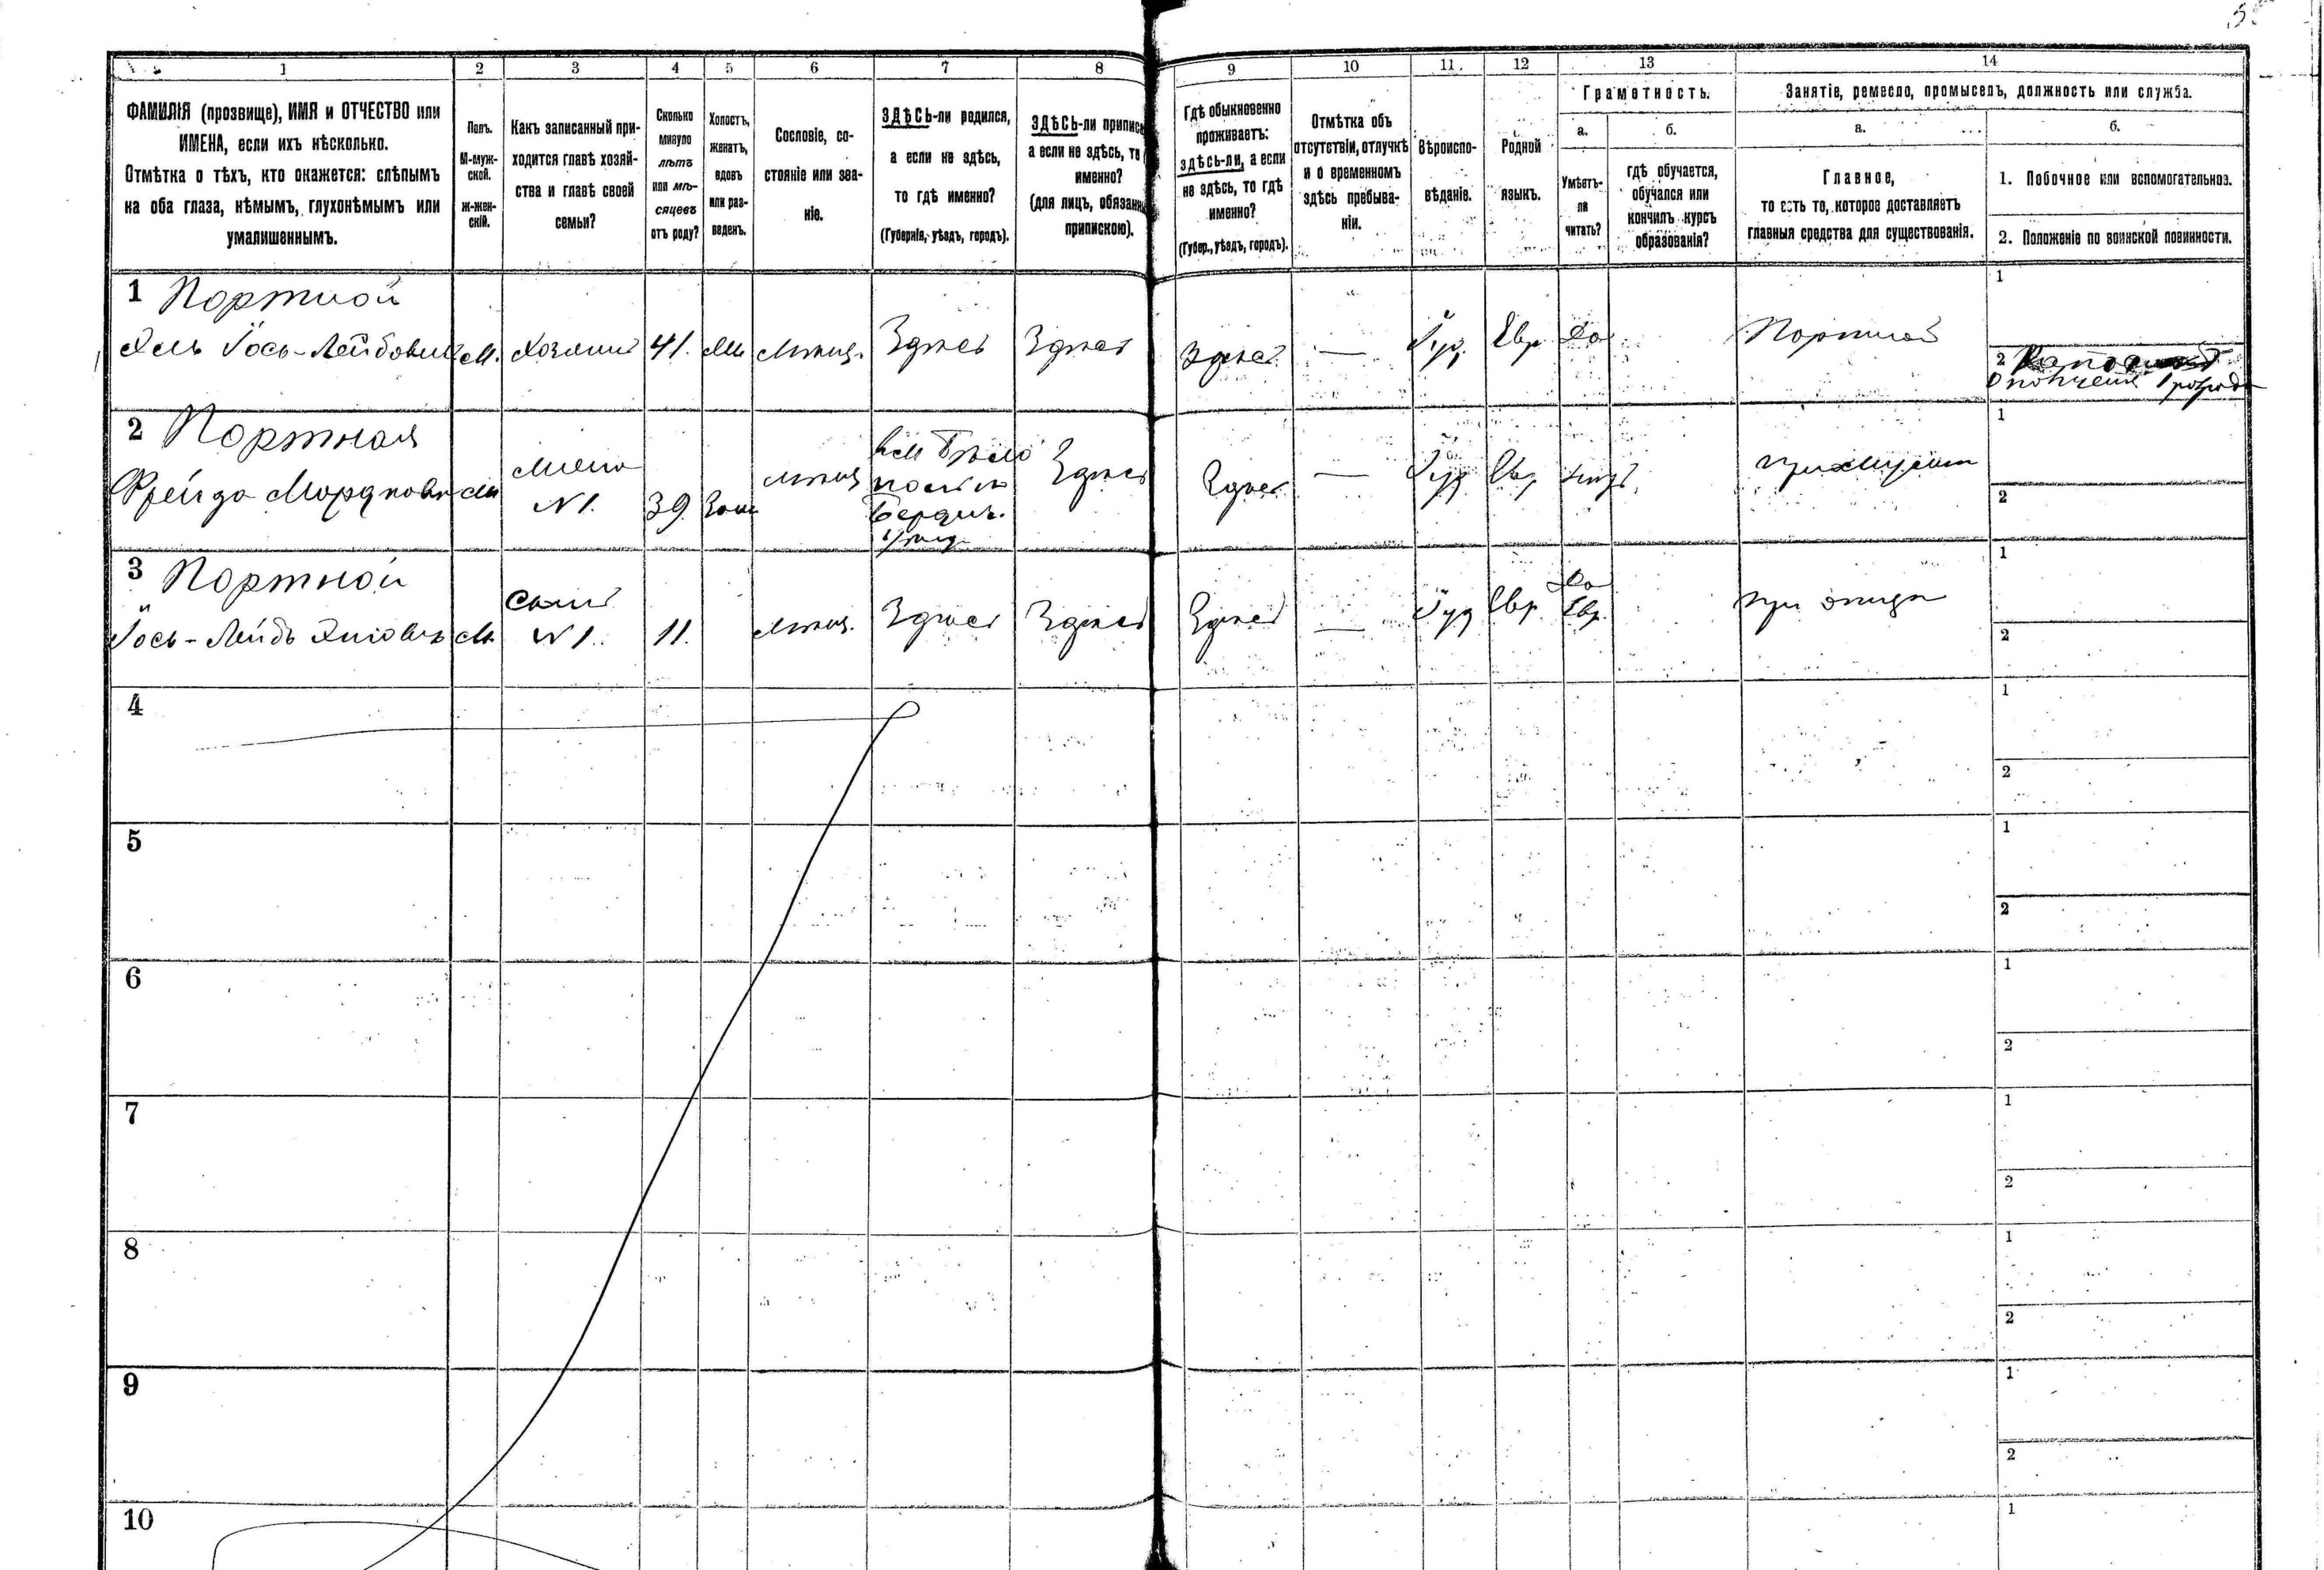 1 2 3 4 5 6 7 8 9 10 11. 12 13 14
ФАМИЛІЯ (прозвище), ИМЯ и ОТЧЕСТВО или
ИМЕНА, если ихъ нѣсколько.
Отмѣтка о тѣхъ, кто окажется: слѣпымъ
на оба глаза, нѣмымъ, глухонѣмымъ или
умалишеннымъ.
Полъ.
М-муж-
ской.
Ж-жен-
скій.
Какъ записанный при-
ходится главѣ хозяй-
ства и главѣ своей
семьи?
Сколько
минуло
лѣтъ
или мѣ-
сяцевъ
отъ роду?
Холостъ,
женатъ,
вдовъ
или раз-
веденъ.
Сословіе, со-
стояніе или зва-
ніе.
ЗДѢСЬ-ли родился,
а если не здѣсь,
то гдѣ именно?
(Губернія, уѣздъ, городъ).
ЗДѢСЬ-ли приписа
а если не здѣсь, то
именно?
(для лицъ, обязанн
припискою).
Гдѣ обыкновенно
проживаетъ:
здѣсь-ли, а если
не здѣсь, то гдѣ
именно?
(Губер., уѣздъ, городъ).
Отмѣтка объ
отсутствіи, отлучкѣ
и о временномъ
здѣсь пребыва-
ніи.
Вѣроиспо-
вѣданіе.
Родной
языкъ.
Грамотность.
а. б.
Умѣетъ-
ли
читать?
гдѣ обучается,
обучался или
кончилъ курсъ
образованія?
Занятіе, ремесло, промыселъ, должность или служба.
а. б.
Главное,
то есть то, которое доставляетъ
главныя средства для существованія.
1. Побочное или вспомогательное.
2. Положеніе по воинской повинности.
1 Портной
Хель Іось-Лейбовичъ М. Хозяинъ 41. Жен Мѣщ. Здѣсь Здѣсь Здѣсь — Іуд. Евр. Да Портной
1
2
Ополченія 1 разряда
2 Портная
Фрейда Мордковн Ж Жена
N 1. 39 Зам Мѣщ
Бердич.
уѣзда
Здѣсь Здѣсь — Іуд Евр Нѣтъ. при мужѣ
1
2
3 Портной
Іось-Лейбъ М. Сынъ
N 1. 11. Мѣщ. Здѣсь Здѣсь Здѣсь — Іуд Евр. Да
Евр. при отцѣ
1
2
4
1
2
5
1
2
6
1
2
7
1
2
8
1
2
9
1
2
10
1